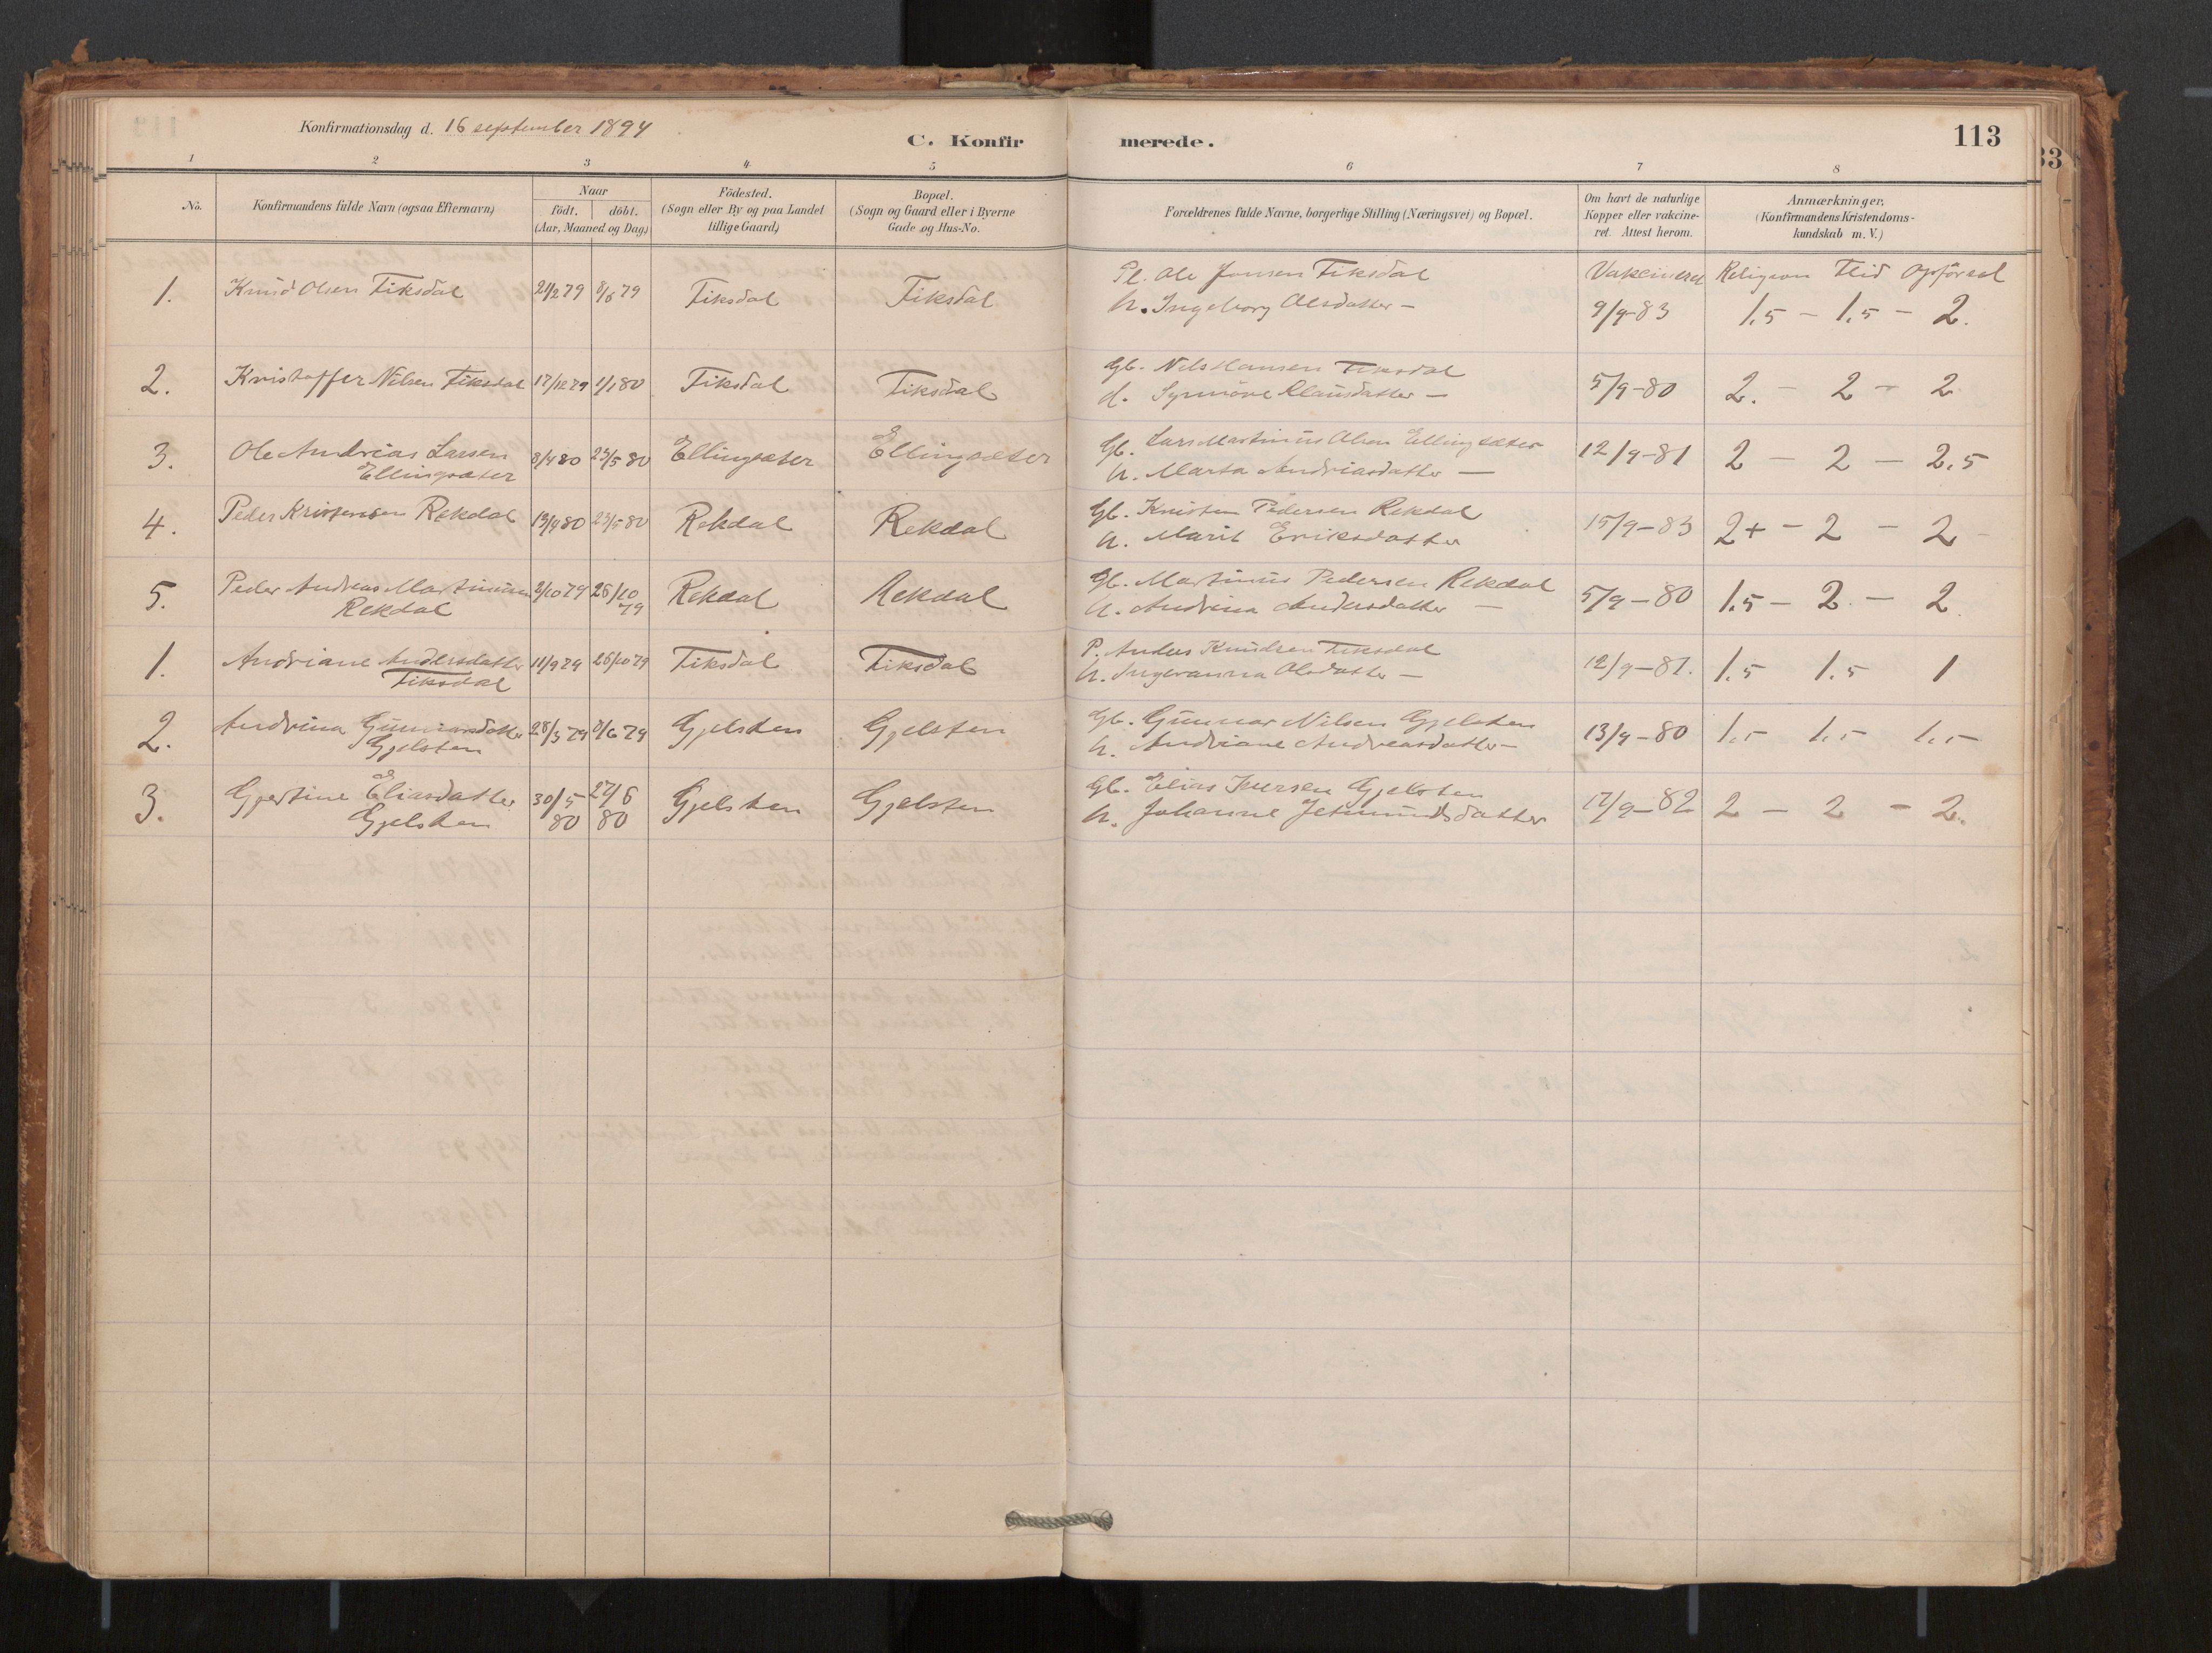 Konfirmationsdag d. 16 september 1894
C. Konfir merede.
113
33
1 2 3 4 5 6 7 8
No.
Konfirmandens fulde Navn (ogsaa Efternavn)
Naar
födt. döbt.
(Aar, Maaned og Dag)
Födested.
(Sogn eller By og paa Landet
tillige Gaard)
Bopæl.
(Sogn og Gaard eller i Byerne
Gade og Hus-No.
Forældrenes fulde Navne, borgerlige Stilling (Næringsvei) og Bopæl.
Om havt de naturlige
Kopper eller vakcine-
ret. Attest herom.
Anmærkninger.
(Konfirmandens Kristendoms-
kundskab m. V.)
Vakcineret Religion Flid Opförsel
1. Knud Olsen Tiksdal 21/2 79 8/6 79 Tiksdal Tiksdal
Pl. Ole Jonsen Tiksdal
h. Ingeborg Olsdatter –
9/9-83 1,5 – 1,5 – 2.
2. Kristoffer Nilsen Tiksdal 17/12 79 1/1 80 Tiksdal Tiksdal
Gb. Nils Hansen Tiksdal
h. Synnöve Klausdatter –
5/9-80 2. – 2 – 2
3. Ole Andrias Larsen
Ellingsæter
8/4 80 23/5 80 Ellingsæter Ellingsæter
Gb. Lars Martinus Olsen Ellingsæter
h. Marta Andriasdatter –
12/9-81 2 – 2 – 2,5
4. Peder Kristensen Rekdal 19/4 80 23/5 80 Rekdal Rekdal
Gb. Kristen Pedersen Rekdal
h. Marit Eriksdatter
15/9-83 2+ – 2 – 2
5. Peder Andreas Martinusen
Rekdal
2/10 79 26/10
79
Rekdal Rekdal
Gb. Martinus Pedersen Rekdal
h. Andrina Andersdatter –
5/9-80 1,5 – 2 – 2
1. Andriane Andersdatter
Tiksdal
11/9 79 26/10 79 Tiksdal Tiksdal
P. Anders Knudsen Tiksdal
h. Ingeranna Olsdatter –
12/9-81. 1,5 1,5 1
2. Andrina Gunnarsdatter
Gjelsten
28/3 79 8/6 79 Gjelsten Gjelsten
Gb. Gunnar Nilsen Gjelsten
h. Andriane Andreasdatter –
13/9-80 1,5 1,5 1,5
3. Gjertine Eliasdatter
Gjelsten
30/5
80
27/6
80
Gjelsten Gjelsten
Gb. Elias Iversen Gjelsten
h. Johanne Jetmundsdatter
17/9-82 2 – 2 – 2.